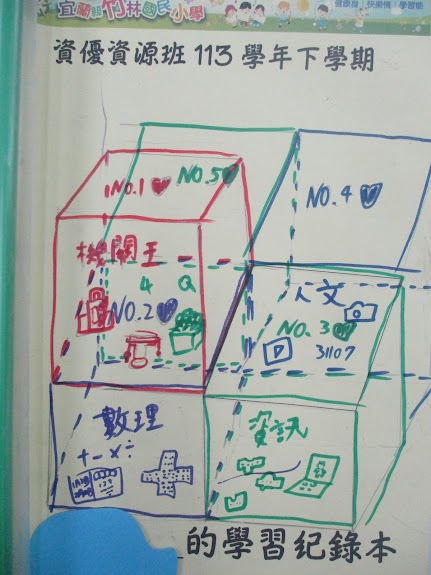 宜蘭縣竹林國民小學
健康身 快樂情 學習能
資優資源班 113 學年下學期
NO.1 NO.5
NO.4
機關王
人文
4 Q
NO.2
NO.3
P
31107
數理
資訊
+-×÷
的學習紀錄本